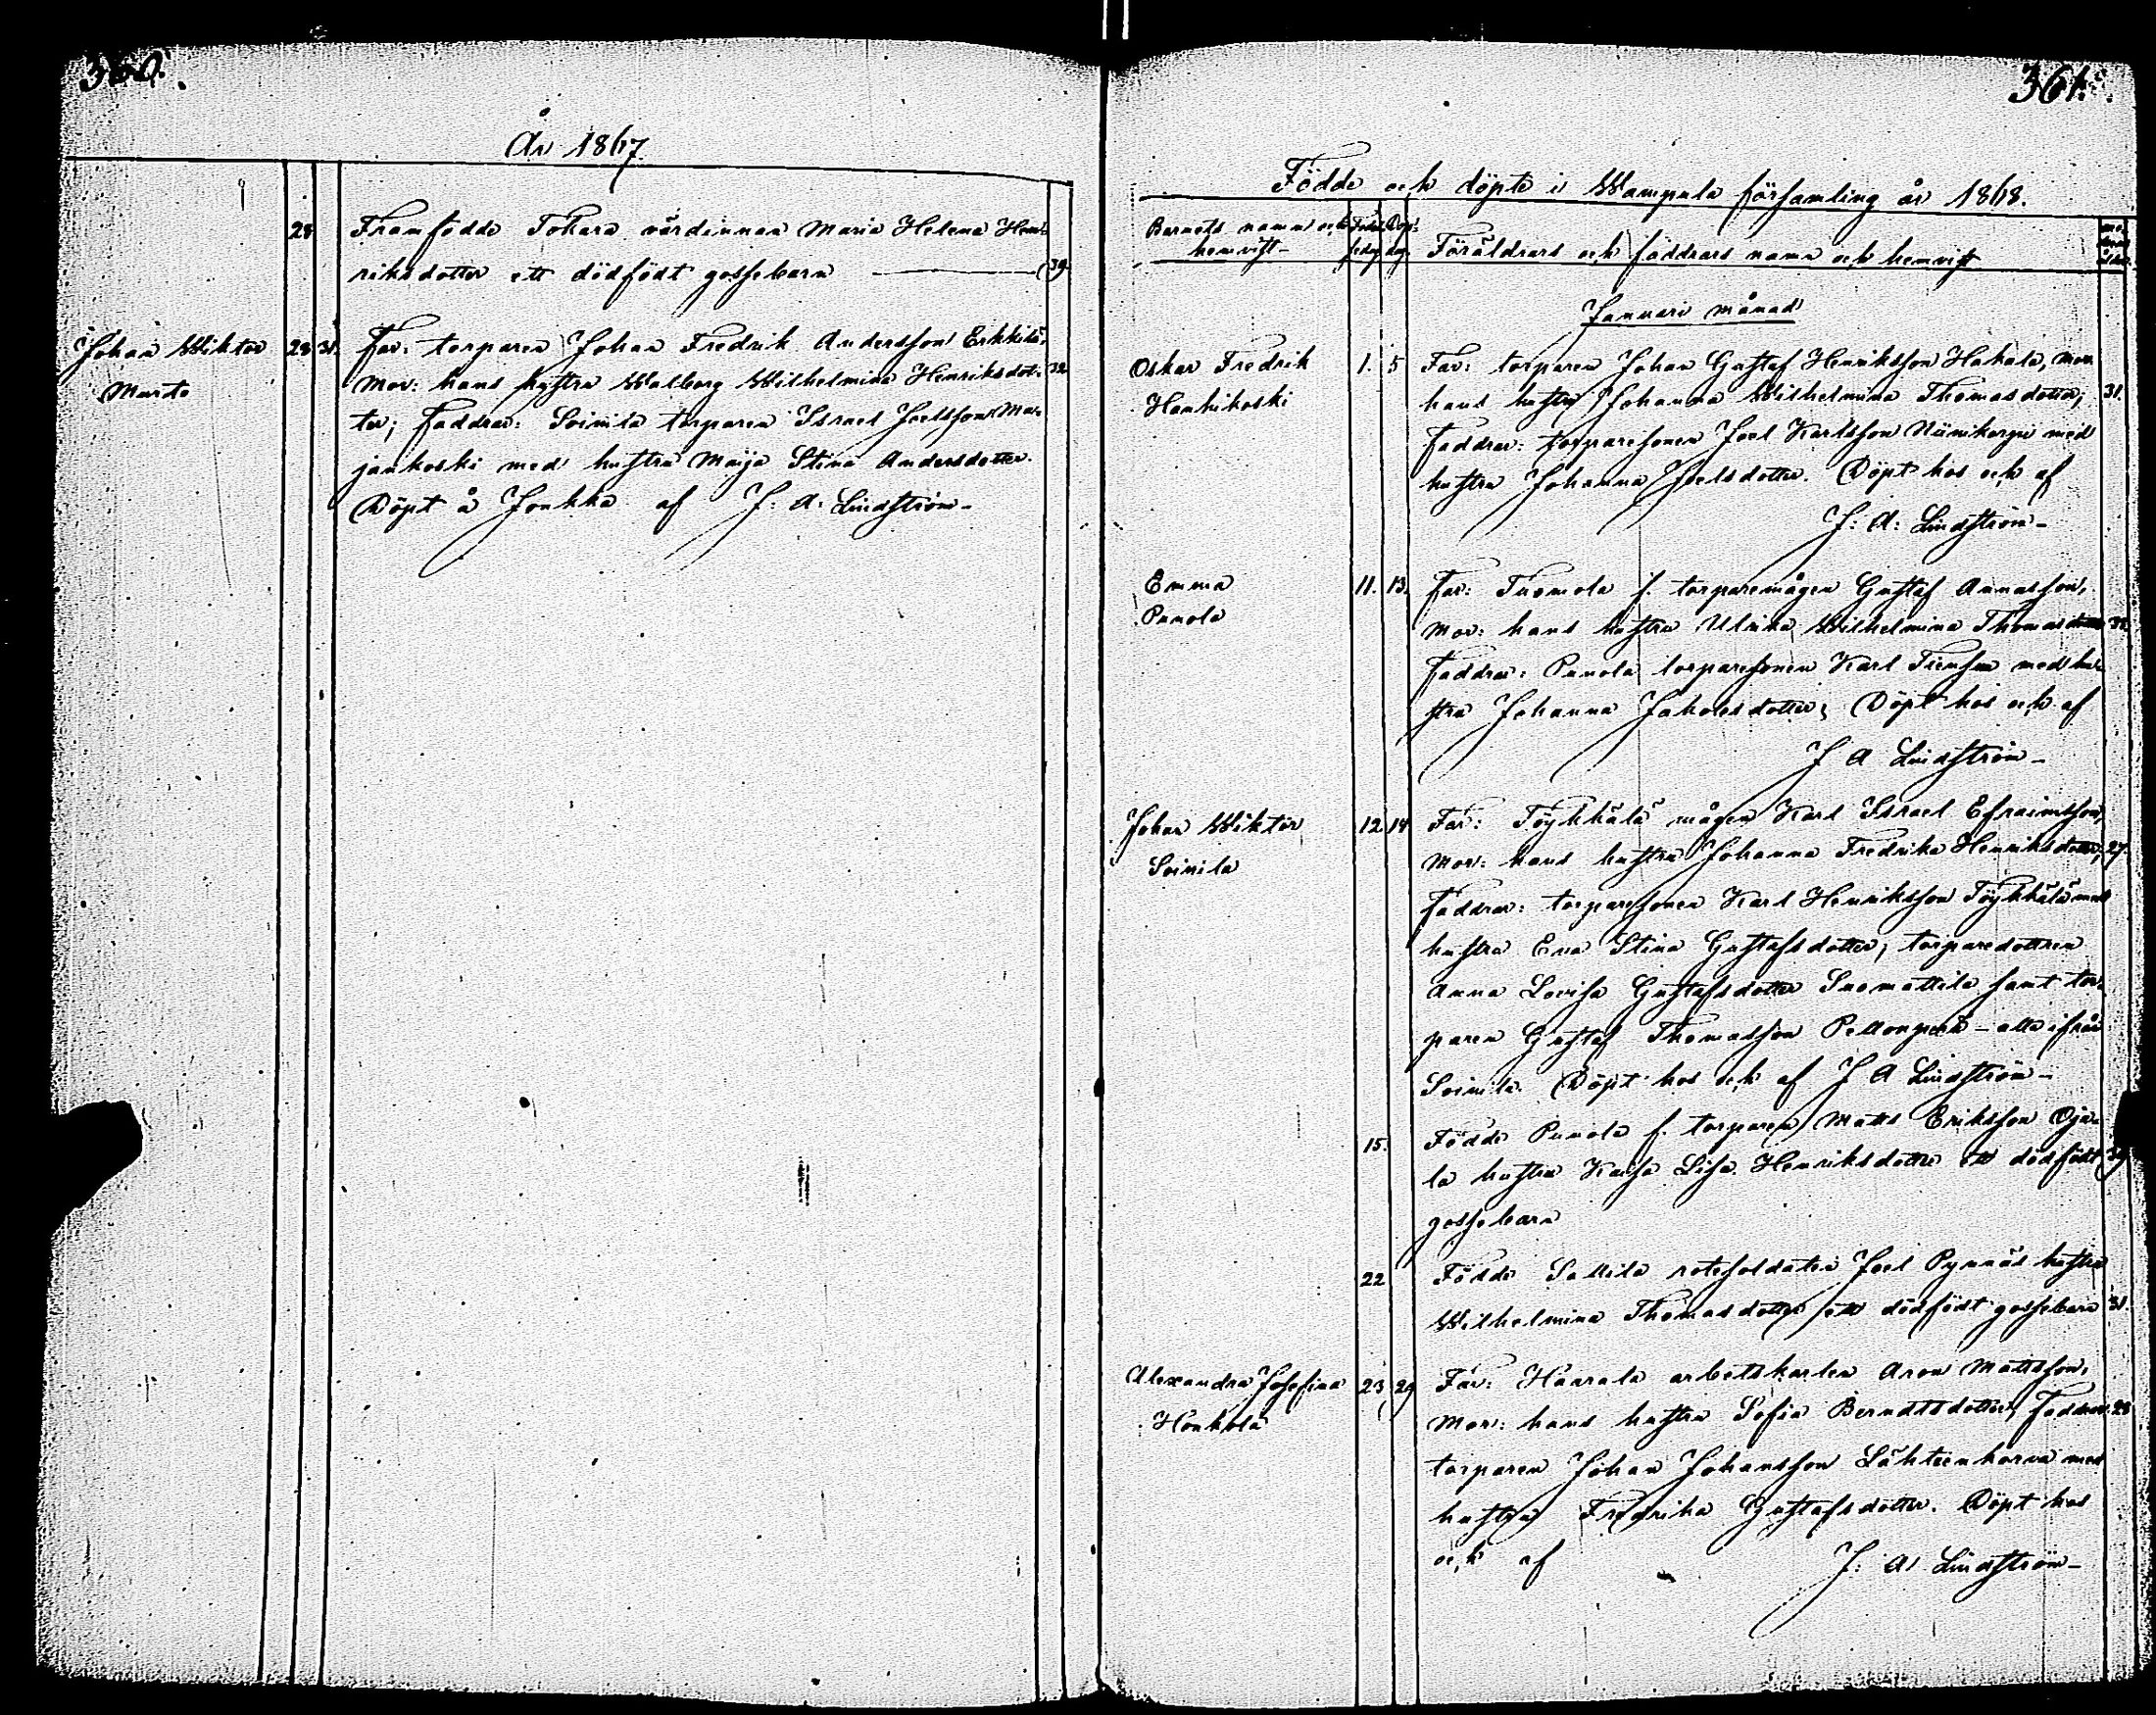 360.
År 1867
28 Framfödde Tokara värdinnan Maria Helena Hen-
riksdotter ett dödfödt gossebarn — 39
Johan Wiktor 28 31. Far: torparen Johan Fredrik Andersson Erkkilä,
Murto Mor: hans hustru Walborg Wilhelmina Henriksdot- 32
ter; Faddrar: Soinila torparen Israel Joelsson Mar-
jankoski med hustru Maija Stina Andersdotter.
Döpt å Jonkka af J: A: Lindström -
361.
Födde och döpte i Wampula församling år 1868.
Barnets namn och
hemvist
Föräldrars och faddrars namn och hemvist
Januari månad
Oskar Fredrik 1. 5 Far: torparen Johan Gustaf Henriksson Hakala, mor
Hankikoski hans hustru Johanna Wilhelmina Thomasdotter; 31.
Faddrar: torparesonen Joel Karlsson Niinikorpi med
hustru Johanna Joelsdotter. Döpt hos och af
J: A: Lindström -
Emma 11. 13. Far: Tuomola f. torparemågen Gustaf Annasson,
Punola Mor: hans hustru Ulrika Wilhelmina Thomasdotter
Faddrar: Punola torparesonen Karl med hu-
stru Johanna Jakobsdotter; Döpt hos och af
J A Lindström -
Johan Wiktor 12. 14 Far: Töykkälä mågen Karl Israel Efraimsson,
Soinila Mor: hans hustru Johanna Fredrika Henriksdotter; 27.
Faddrar: torparesonen Karl Henriksson Töykkälä med
hustru Eva Stina Gustafsdotter, torparedottren
Anna Lovisa Gustafsdotter Suomattila samt tor-
paren Gustaf Thomasson Pellonperä - alla ifrån
Soinila. Döpt hos och af J A Lindström -
15. Födde Punola f. torparen Matts Eriksson Oja-
la hustru Kaisa Lisa Henriksdotter ett dödfödt 39
gossebarn
22 Födde Sallila rotesoldaten Joel Pynnäs hustru
Wilhelmina Thomasdotter ett dödfödt gossebarn 31.
Alexandra Josefina 23 29 Far: Haarala arbetskarlen Aron Mattsson,
Honkola Mor: hans hustru Sofia Berndtsdotter, Faddrar: 28
torparen Johan Johansson Lähteenkorva med
hustru Fredrika Gustafsdotter. Döpt hos
och af J: A: Lindström -